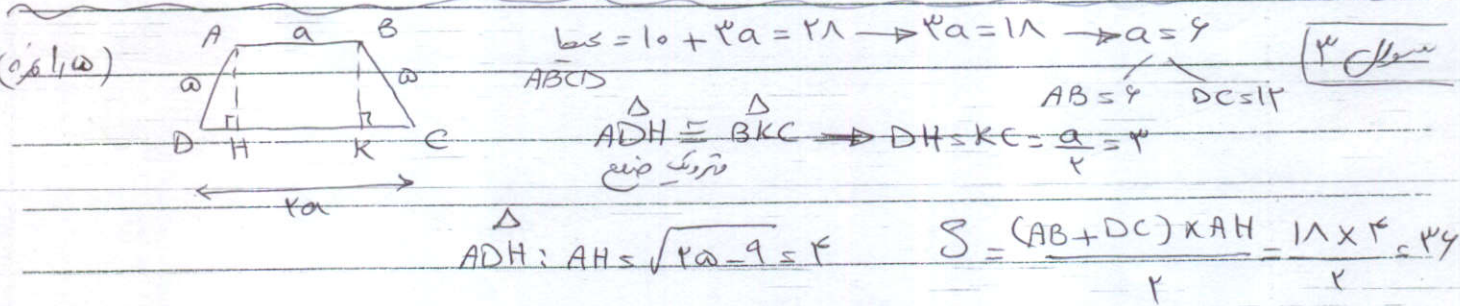 سوال ۳
(۱٫۵ نمره)
A a B
۵ ۵
D H K C
۲a
محیط ABCD = ۱۰ + ۳a = ۲۸ → ۳a = ۱۸ → a = ۶
AB = ۶ DC = ۱۲
ADH ≅ BKC → DH = KC = a/۲ = ۳
وتر و یک ضلع
ADH : AH = √۲۵ − ۹ = ۴ S = (AB + DC) × AH / ۲ = ۱۸ × ۴ / ۲ = ۳۶